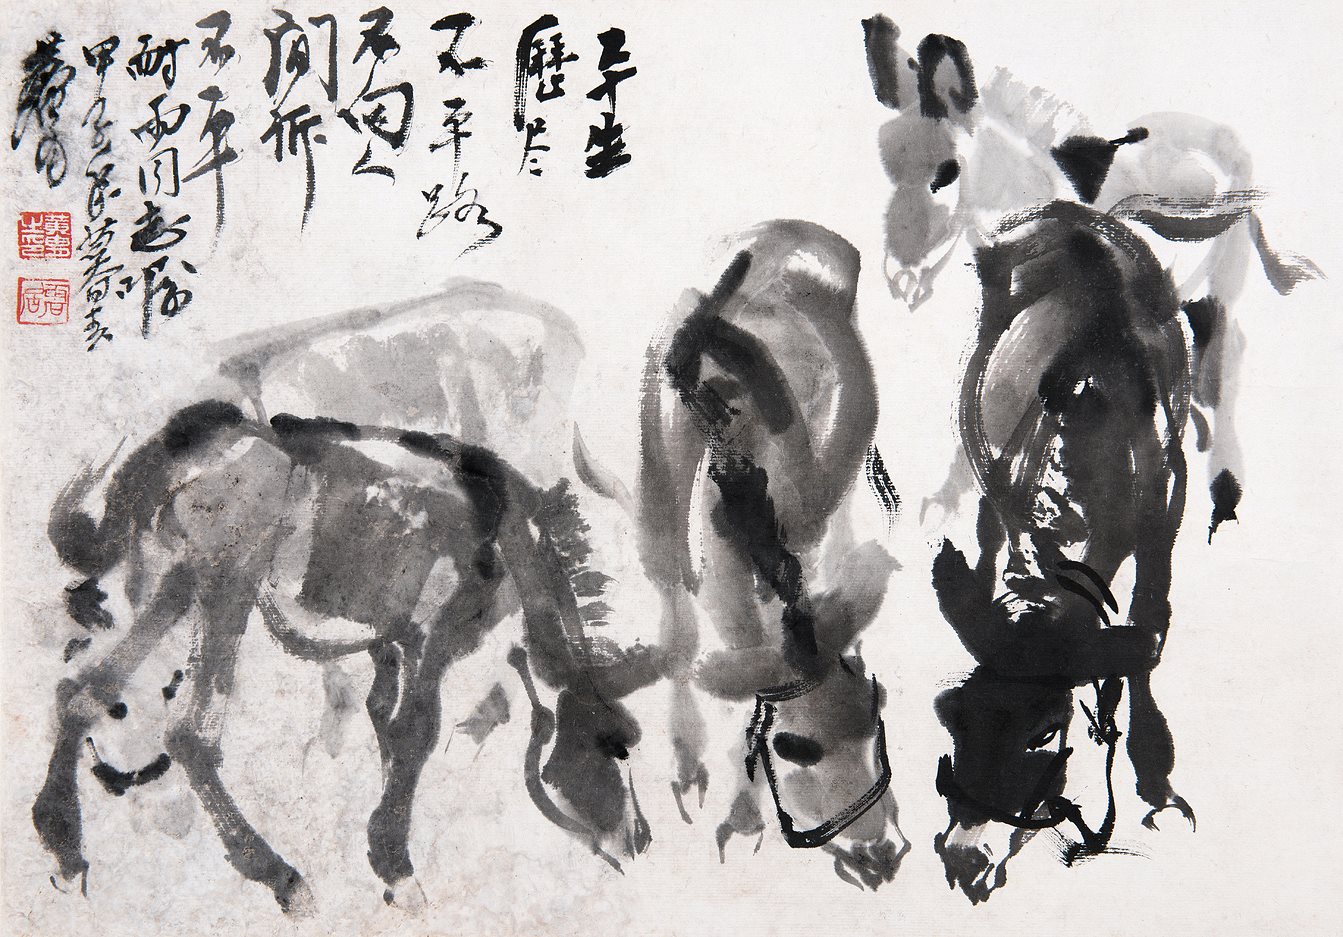 平生
歷尽
不平路
不向人
间诉
不平
耐雨同志嘱
甲子
黄胄
黄胄之印